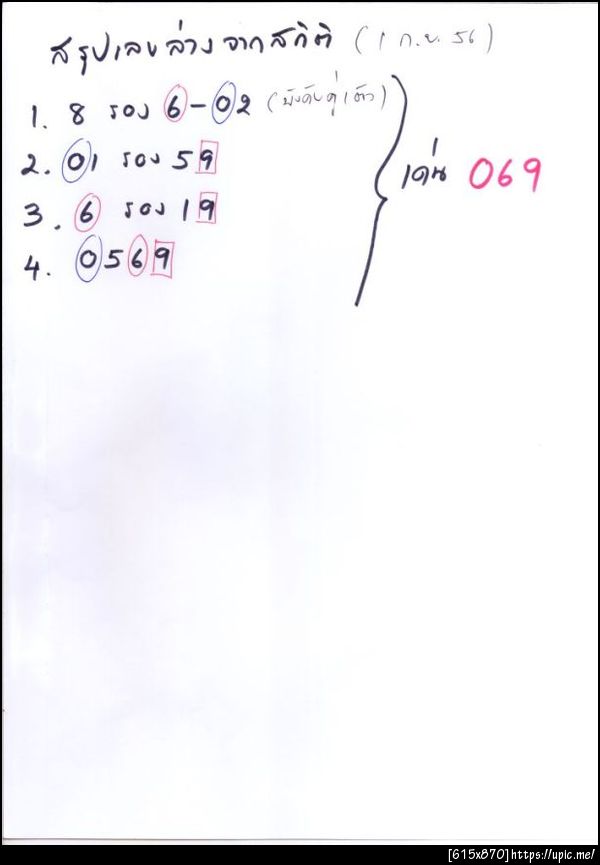 สรุปเลขล่างจากสถิติ (1 ก.ย. 56)
1. 8 รอง 6-02 (บังคับคู่ 1 ตัว)
2. 01 รอง 59
3. 6 รอง 19
4. 0569
เด่น 069
[615x870]https://upic.me/